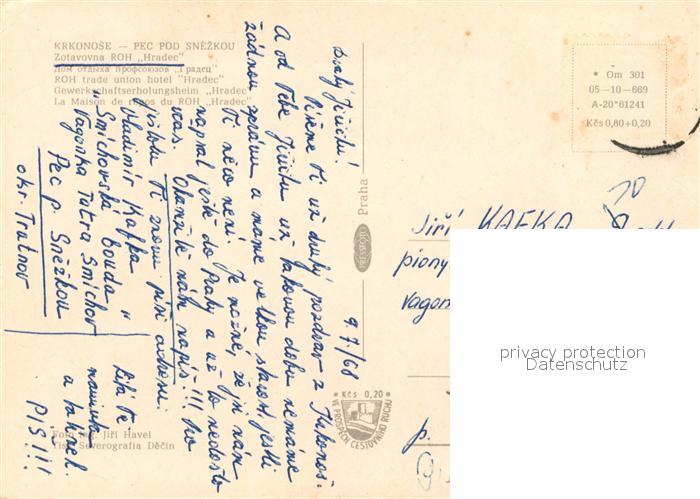 KRKONOŠE — PEC POD SNĚŽKOU
Zotavovna ROH „Hradec"
Дом отдыха профсоюзов „Градец"
ROH trade union hotel "Hradec"
Gewerkschaftserholungsheim „Hradec"
La Maison de repos du ROH „Hradec"
9. 7./68
Drahý Jiříčku!
Píšeme Ti už druhý pozdrav z Krkonoš.
A od Tebe Jiříčku už takovou dobu nemáme
žádnou zprávu a máme velkou starost jestli
Ti něco není. Je možné, že jsi nám
napsal ještě do Prahy a už to nedošlo
včas. Okamžitě nám napiš!!!
Ti znovu píši adresu:
Vladimír Kafka
"Smíchovská bouda"
Vagonka Tatra Smíchov
Pec p. Sněžkou
okr. Trutnov
Líbá Tě
maminka
a tatínek.
PIŠ!!!
Foto Ing. Jiří Havel
Tisk Severografia Děčín
PRESSFOTO Praha
* Kčs 0,20 *
VE PROSPĚCH CESTOVNÍHO RUCHU
* Om 301
05-10-669
A-20*61241
Kčs 0,80+0,20
Jiří KAFKA
piony
vagon
p.
privacy protection
Datenschutz